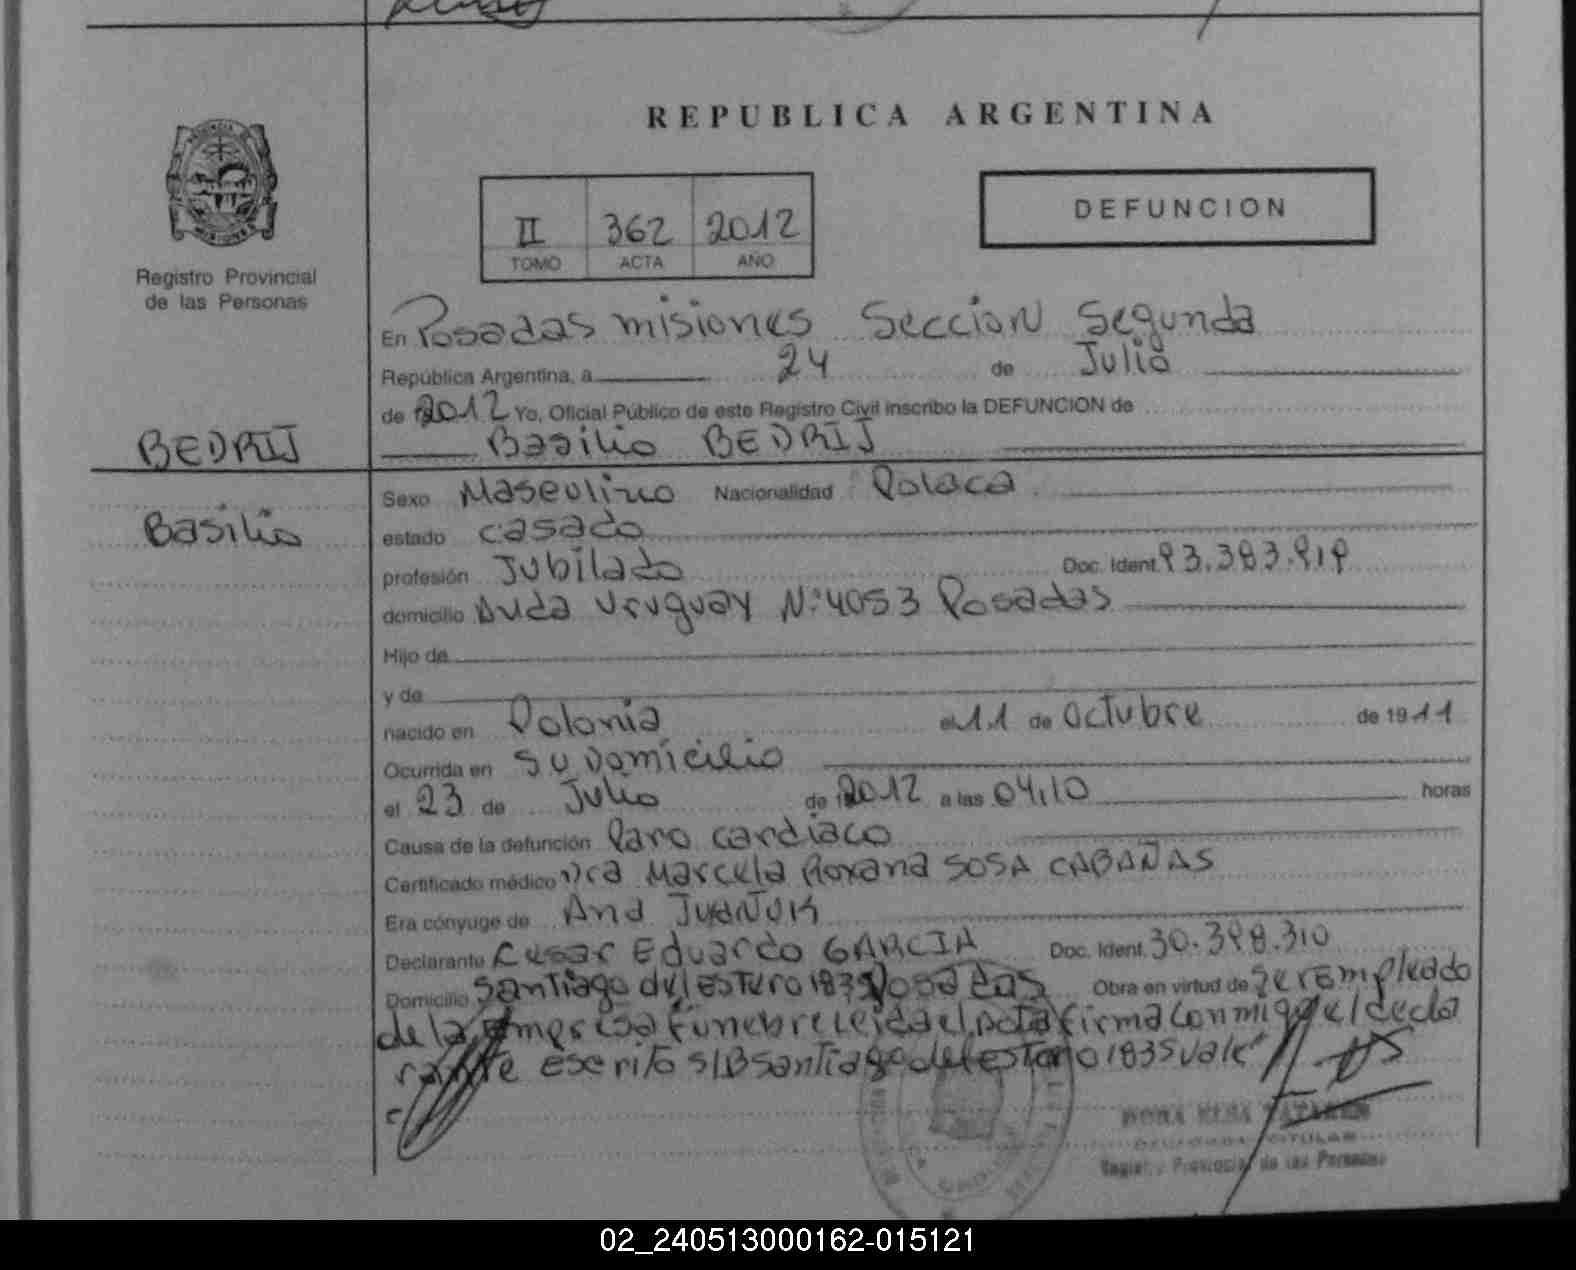 REPUBLICA ARGENTINA
II 362 2012
TOMO ACTA AÑO
DEFUNCION
Registro Provincial
de las Personas
En Posadas misiones Seccion Segunda
República Argentina, a 24 de Julio
de 2012 Yo, Oficial Público de este Registro Civil inscribo la DEFUNCION de
Basilio BEDRIJ
BEDRIJ
Basilio
Sexo Masculino Nacionalidad Polaca
estado casado
profesión Jubilado Doc. Ident. 93.383.919
domicilio Avda Uruguay Nº 4053 Posadas
Hijo de
y de
nacido en Polonia el 11 de Octubre de 1911
Ocurrida en su Domicilio
el 23 de Julio de 2012 a las 04,10 horas
Causa de la defunción Paro cardiaco
Certificado médico Dra Marcela Roxana SOSA CABAÑAS
Era cónyuge de Ana
Declarante Cesar Eduardo GARCIA Doc. Ident. 30.398.310
Domicilio Santiago del estero 1835 Posadas Obra en virtud de ser empleado
de la empresa funebre leida el Acta firma conmigo el decla
rante escrito s/B santiago del estero 1835 vale
DORA ELSA
TITULAR
Registro Provincial de las Personas
02_240513000162-015121